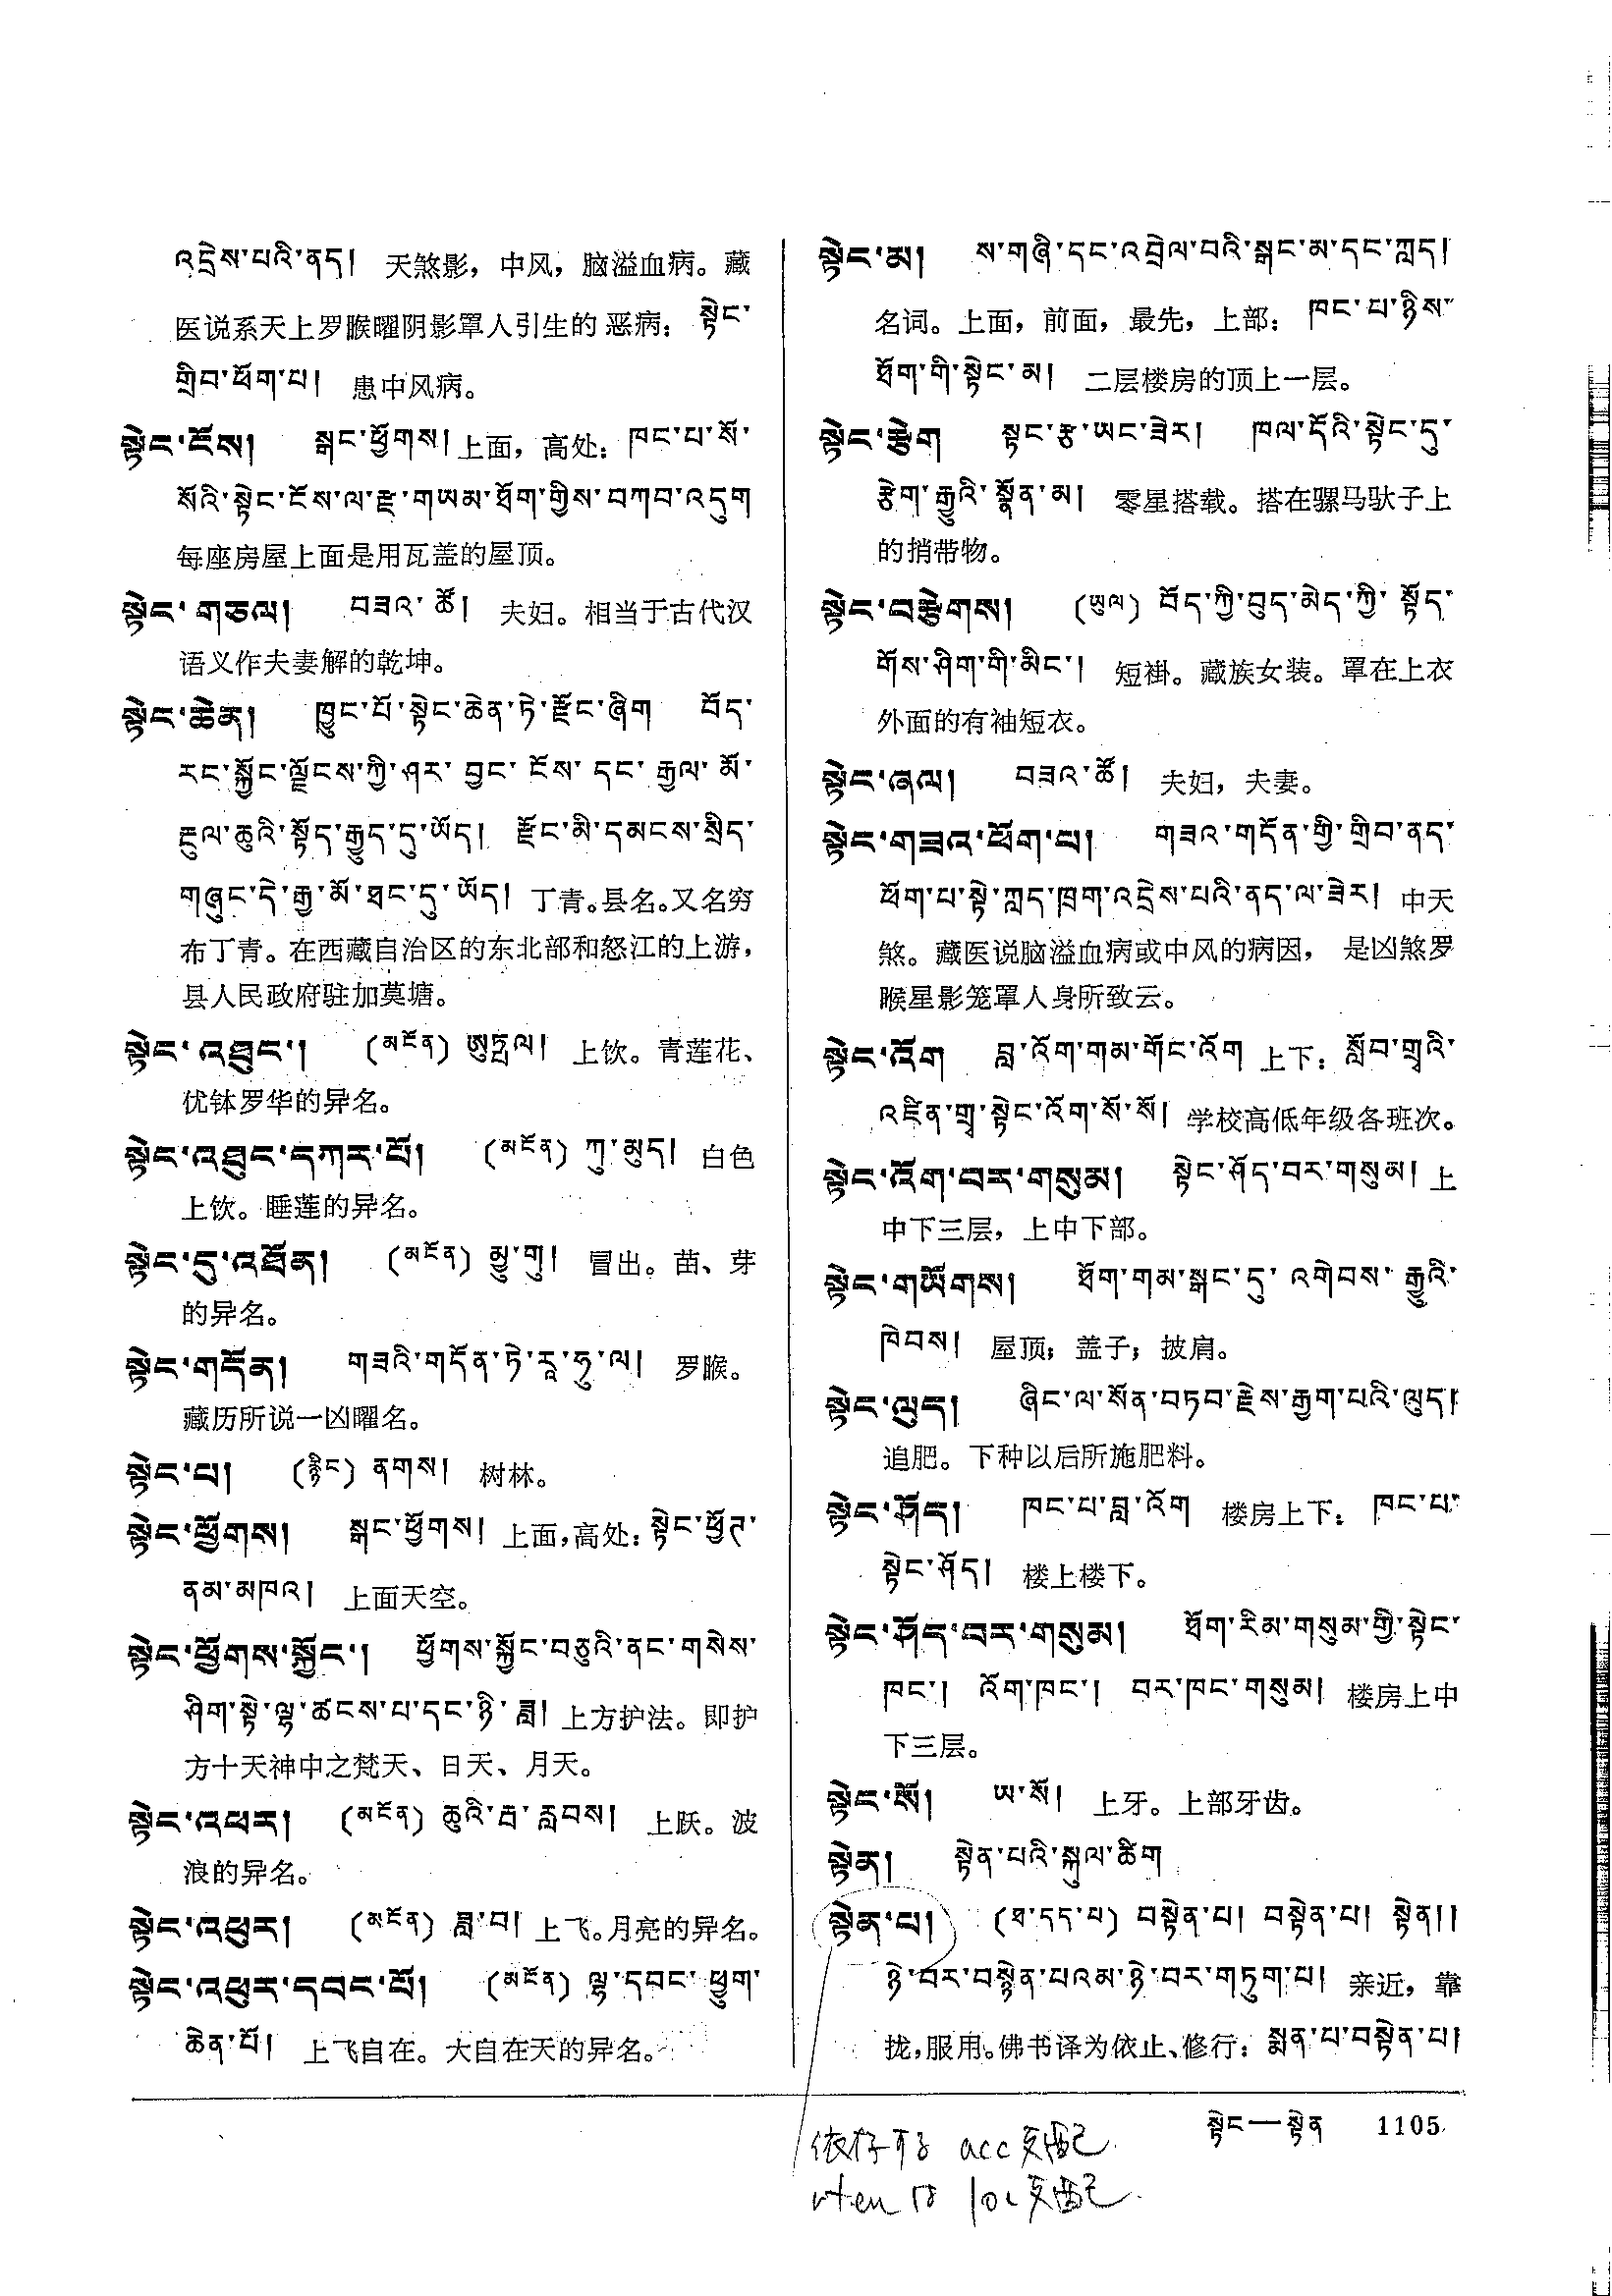 འདྲེས་པའི་ནད། 天煞影，中风，脑溢血病。藏
医说系天上罗睺曜阴影罩人引生的恶病：སྟེང་
གྲིབ་ཕོག་པ། 患中风病。
སྟེང་ངོས། སྒང་ཕྱོགས། 上面，高处：ཁང་པ་སོ་
སོའི་སྟེང་ངོས་ལ་རྫ་གཡམ་ཐོག་གྱིས་བཀབ་འདུག
每座房屋上面是用瓦盖的屋顶。
སྟེང་གཅལ། བཟའ་ཚོ། 夫妇。相当于古代汉
语义作夫妻解的乾坤。
སྟེང་ཆེན། ཁྱུང་པོ་སྟེང་ཆེན་ཏེ་རྫོང་ཞིག བོད་
རང་སྐྱོང་ལྗོངས་ཀྱི་ཤར་བྱང་ངོས་དང་རྒྱལ་མོ་
རྔུལ་ཆུའི་སྟོད་རྒྱུད་དུ་ཡོད། རྫོང་མི་དམངས་སྲིད་
གཞུང་དེ་རྒྱ་མོ་ཐང་དུ་ཡོད། 丁青。县名。又名穷
布丁青。在西藏自治区的东北部和怒江的上游，
县人民政府驻加莫塘。
སྟེང་འཐུང་། (མངོན) ཨུཏྤལ། 上饮。青莲花、
优钵罗华的异名。
སྟེང་འཐུང་དཀར་པོ། (མངོན) ཀུ་མུད། 白色
上饮。睡莲的异名。
སྟེང་དུ་འཐོན། (མངོན) མྱུ་གུ། 冒出。苗、芽
的异名。
སྟེང་གདོན། གཟའི་གདོན་ཏེ་རཱ་ཧུ་ལ། 罗睺。
藏历所说一凶曜名。
སྟེང་པ། (རྙིང) ནགས། 树林。
སྟེང་ཕྱོགས། སྒང་ཕྱོགས། 上面，高处：སྟེང་ཕྱོཊ་
ནམ་མཁའ། 上面天空。
སྟེང་ཕྱོགས་སྐྱོང་། ཕྱོགས་སྐྱོང་བཅུའི་ནང་གསེས་
ཤིག་སྟེ་ལྷ་ཚངས་པ་དང་ཉི་ཟླ། 上方护法。即护
方十天神中之梵天、日天、月天。
སྟེང་འཕར། (མངོན) ཆུའི་རྦ་རླབས། 上跃。波
浪的异名。
སྟེང་འཕུར། (མངོན) ཟླ་བ། 上飞。月亮的异名。
སྟེང་འཕུར་དབང་པོ། (མངོན) ལྷ་དབང་ཕྱུག་
ཆེན་པོ། 上飞自在。大自在天的异名。
སྟེང་མ། ས་གཞི་དང་འབྲེལ་བའི་སྒང་མ་དང་ཀླད།
名词。上面，前面，最先，上部：ཁང་པ་ཉིས་
ཐོག་གི་སྟེང་མ། 二层楼房的顶上一层。
སྟེང་རྩེག སྟང་རྩ་ཡང་ཟེར། ཁལ་དོའི་སྟེང་དུ་
རྩེག་རྒྱུའི་སྣོན་མ། 零星搭载。搭在骡马驮子上
的捎带物。
སྟེང་བརྩེགས། (ཡུལ) བོད་ཀྱི་བུད་མེད་ཀྱི་སྟོད་
གོས་ཤིག་གི་མིང་། 短褂。藏族女装。罩在上衣
外面的有袖短衣。
སྟེང་ཞལ། བཟའ་ཚོ། 夫妇，夫妻。
སྟེང་གཟའ་ཕོག་པ། གཟའ་གདོན་གྱི་གྲིབ་ནད་
ཕོག་པ་སྟེ་ཀླད་ཁྲག་འདྲེས་པའི་ནད་ལ་ཟེར། 中天
煞。藏医说脑溢血病或中风的病因，是凶煞罗
睺星影笼罩人身所致云。
སྟེང་འོག བླ་འོག་གམ་གོང་འོག 上下：སློབ་གྲྭའི་
འཛིན་གྲྭ་སྟེང་འོག་སོ་སོ། 学校高低年级各班次。
སྟེང་འོག་བར་གསུམ། སྟེང་ཤོད་བར་གསུམ། 上
中下三层，上中下部。
སྟེང་གཡོགས། ཐོག་གམ་སྒང་དུ་འགེབས་རྒྱུའི་
ཁེབས། 屋顶；盖子；披肩。
སྟེང་ལུད། ཞིང་ལ་སོན་བཏབ་རྗེས་རྒྱག་པའི་ལུད།
追肥。下种以后所施肥料。
སྟེང་ཤོད། ཁང་པ་བླ་འོག 楼房上下：ཁང་པ་
སྟེང་ཤོད། 楼上楼下。
སྟེང་ཤོད་བར་གསུམ། ཐོག་རིམ་གསུམ་གྱི་སྟེང་
ཁང་། འོག་ཁང་། བར་ཁང་གསུམ། 楼房上中
下三层。
སྟེང་སོ། ཡ་སོ། 上牙。上部牙齿。
སྟེན། སྟེན་པའི་སྐུལ་ཚིག
སྟེན་པ། (ཐ་དད་པ) བསྟེན་པ། བསྟེན་པ། སྟེན།།
ཉེ་བར་བསྙེན་པའམ་ཉེ་བར་གཏུག་པ། 亲近，靠
拢，服用。佛书译为依止、修行：སྨན་པ་བསྟེན་པ།
སྟེང—སྟེན 1105
依存する acc支配
rten は loc支配